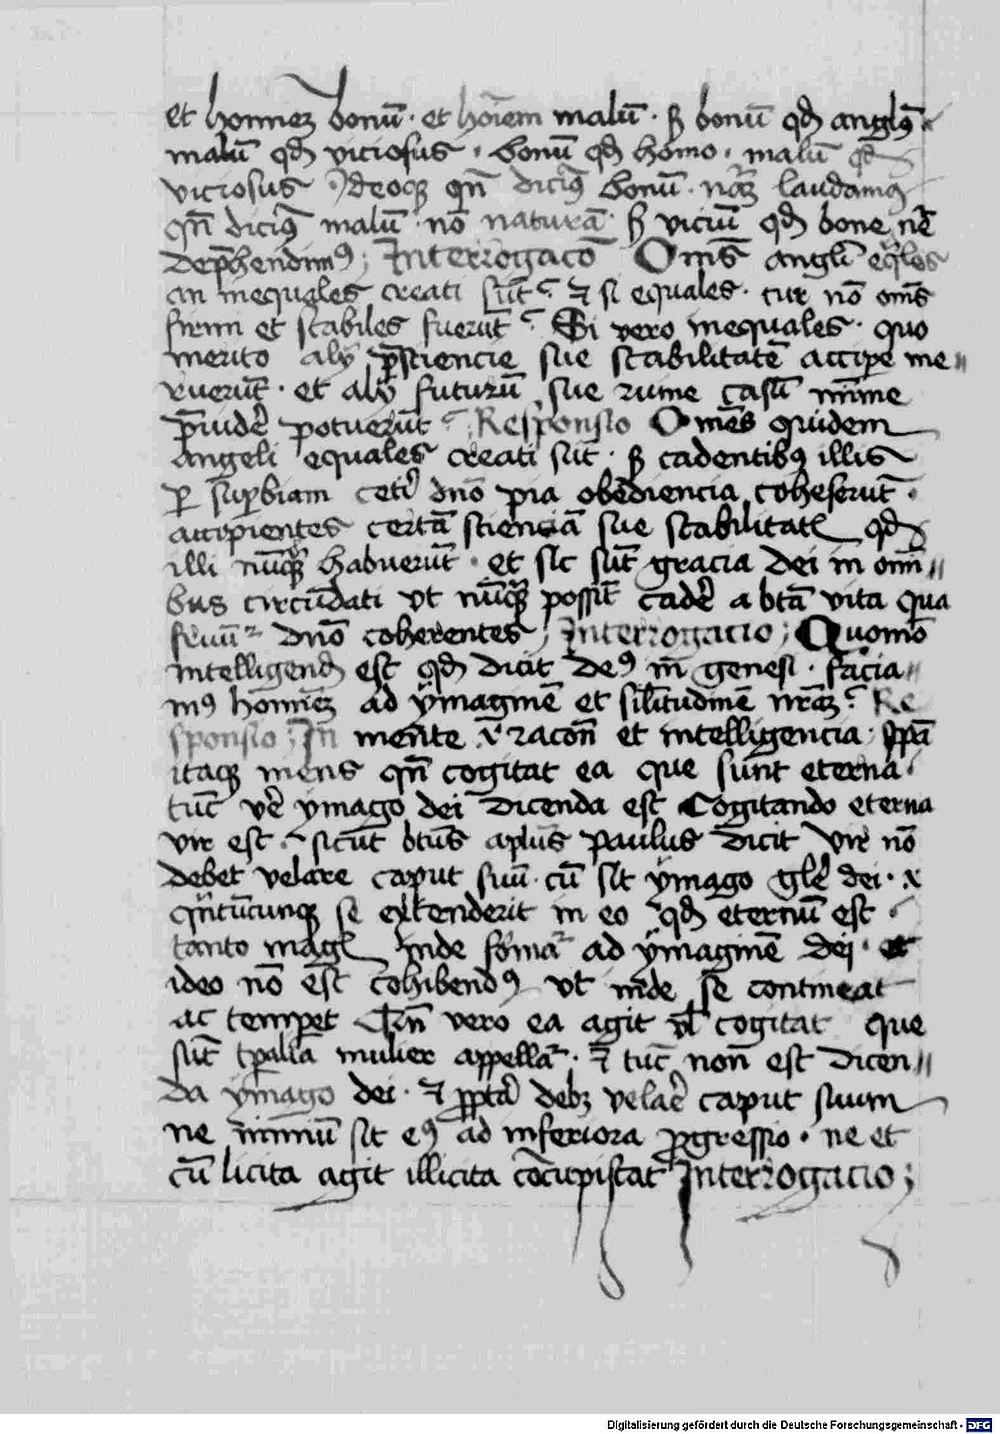 et homineꝫ bonū · et hoīem malū · sꝫ bonū qđ anglꝰ
malū qđ viciosus · bonū qđ homo · malū qđ
viciosus Jdeocꝫ qn̄ dicimꝰ bonū · natꝫ laudamꝰ
qn̄ dicimꝰ malū · nō naturā · sꝫ viciū qđ bone nē
dep̄hendimꝰ ; Interrogacō Om̄s angli eq̄les
an inequales creati sūt · ⁊ si equales · cur nō om̄s
firmi et stabiles fuerūt · Si vero inequales · quo
merito alij p̄sciencie sue stabilitatē accipe me〃
ruerūt · et alij futurū sue ruine casū mīme
p̄uidē potuerūt · Responsio Om̄es quidem
angeli equales creati sūt · sꝫ cadentibꝰ illis
ꝑ suꝑbiam cetī dn̄o pia obediencia coheserūt ·
accipientes certā scienciā sue stabilitatꝭ qđ
illi nūqꝫ habuerūt · et sic sūt gracia dei in omī〃
bus circūdati vt nūqꝫ possīt cadē a btā vita qua
fruūt᷑ dn̄o coherentes ; Interrogacio ; Quomō
intelligend est qđ dicit deꝰ in genesi · facia〃
mꝰ homineꝫ ad ymaginē et silitudinē nr̄aꝫ · Re
sponsio ; In mente ⁊ racōn et intelligencia · spā
itaqꝫ mens qn̄ cogitat ea que sunt eterna ·
tūc vē ymago dei dicenda est Cogitando eterna
vir est · sicut btūs aplūs paulus dicit Vir nō
debet velare caput suū · cū sit ymago glē dei · ⁊
qn̄tūcunqꝫ se extenderit in eo qđ eternū est ·
tanto magꝭ Inde format᷑ ad ymaginē dei · et
ideo nō est cohibendꝰ vt inde se contineat
ac tempet Qn̄ vero ea agit vl cogitat que
sūt tꝑalia mulier appellat᷑ · ⁊ tūc non est dicen〃
da ymago dei · ⁊ ꝓptā debꝫ velarē caput suum
ne nimiū sit eiꝰ ad inferiora ꝓgressio · ne et
cū licita agit illicita cōcupiscat Interrogacio ;
Digitalisierung gefördert durch die Deutsche Forschungsgemeinschaft - DFG